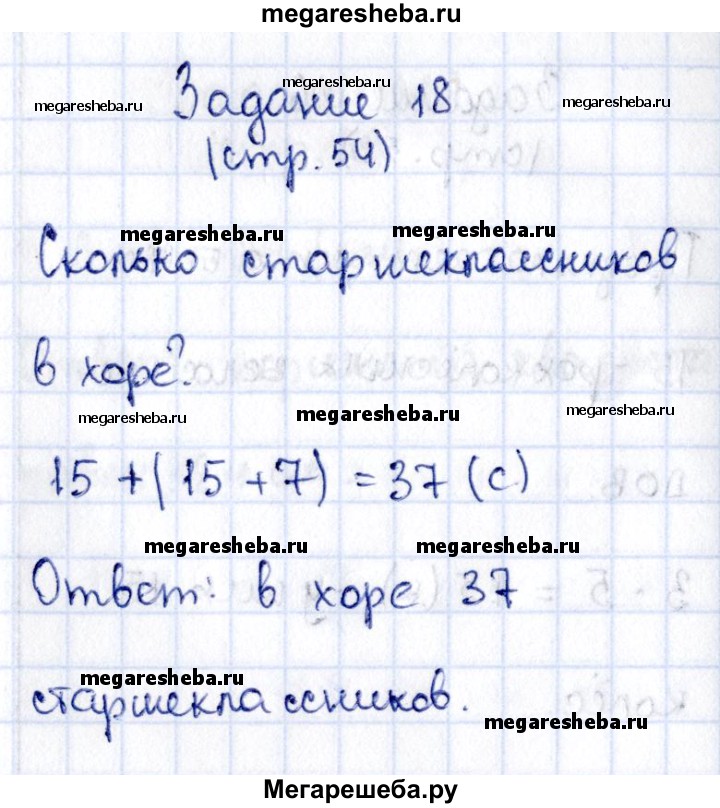 megaresheba.ru
Задание 18
megaresheba.ru
megaresheba.ru
megaresheba.ru
(стр. 54)
megaresheba.ru
megaresheba.ru
Сколько старшеклассников
в хоре?
megaresheba.ru
megaresheba.ru
megaresheba.ru
15 + (15 + 7) = 37 (с)
megaresheba.ru
megaresheba.ru
Ответ: в хоре 37
megaresheba.ru
старшеклассников.
megaresheba.ru
Мегарешеба.ру